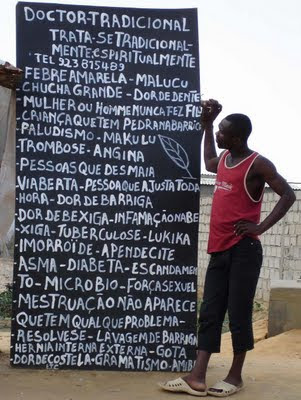 DOCTOR-TRADICIONAL
TRATA-SE TRADICIONAL-
MENTE, ESPIRITUALMENTE
TEL 923815489
FEBRE AMARELA-MALUCU
CHUCHA GRANDE-DOR DE DENTE
MULHER OU HOMME NUNCA FEZ FILH
CRIANÇA QUE TEM PEDRA NA BARRIG
PALUDISMO-MAKULU
TROMBOSE-ANGINA
PESSOAS QUE DESMAIA
VIABERTA-PESSOA QUE AJUSTA TODA
HORA-DOR DE BARRIGA
DOR DE BEXIGA-INFAMAÇÃO NA BE
XIGA-TUBERCULOSE-LUKIKA
IMORROÍDE-APENDECITE
ASMA-DIABETA-ESCANDAMEN
TO-MICROBIO-FORÇA SEXUEL
MESTRUAÇÃO NÃO APARECE
QUE TEM QUALQUE PROBLEMA-
RESOLVESE-LAVAGEM DE BARRIGA
HERNIA INTERNA EXTERNA-GOTA
DOR DE COSTELA-GRAMATISMO-AMIB
ETC